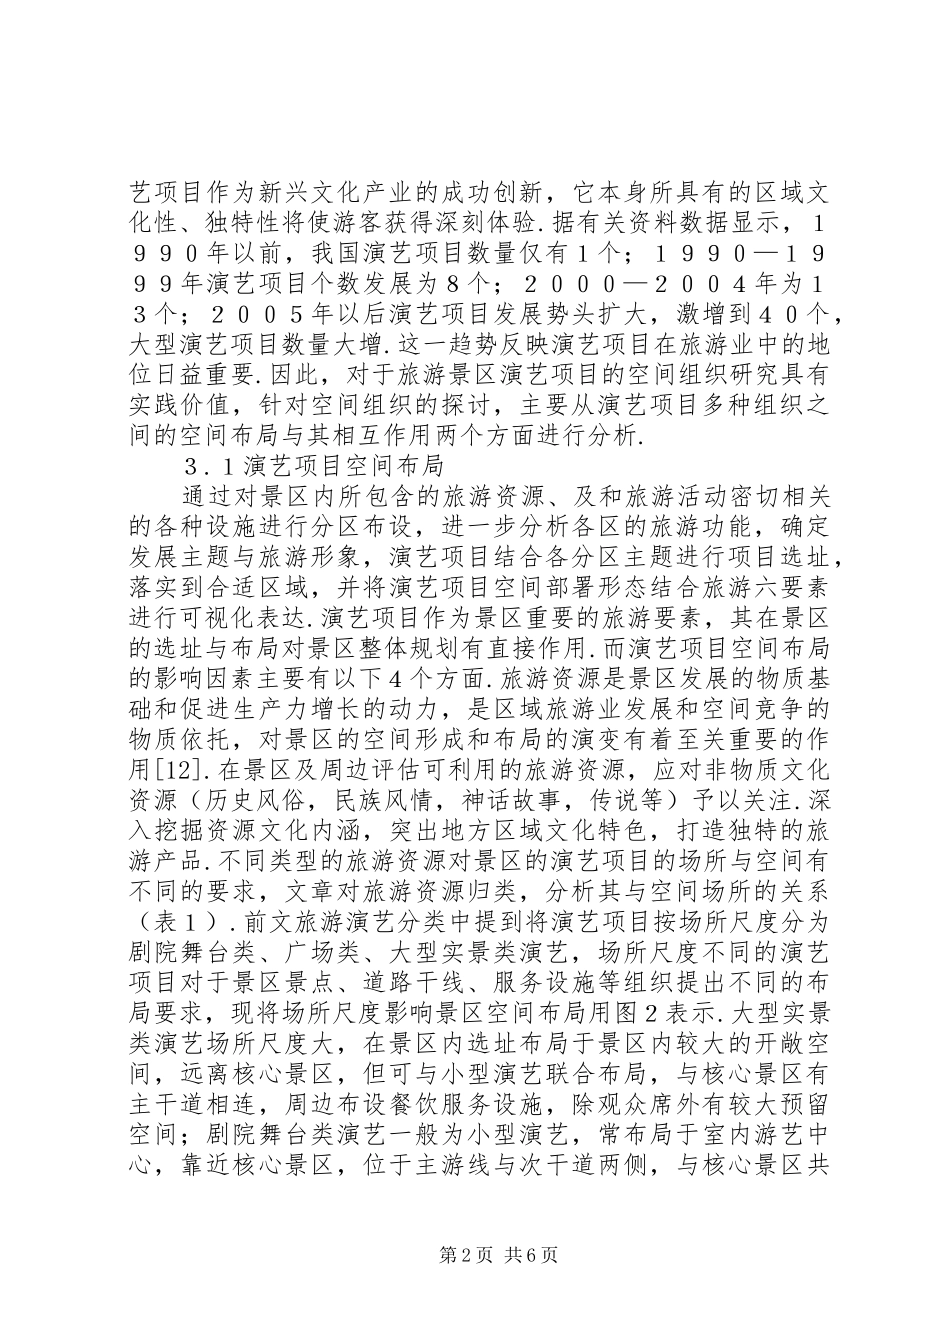 艺项目作为新兴文化产业的成功创新，它本身所具有的区域文
化性、独特性将使游客获得深刻体验.据有关资料数据显示，１
９９０年以前，我国演艺项目数量仅有１个；１９９０—１９
９９年演艺项目个数发展为８个；２０００—２００４年为１
３个；２００５年以后演艺项目发展势头扩大，激增到４０个，
大型演艺项目数量大增.这一趋势反映演艺项目在旅游业中的地
位日益重要.因此，对于旅游景区演艺项目的空间组织研究具有
实践价值，针对空间组织的探讨，主要从演艺项目多种组织之
间的空间布局与其相互作用两个方面进行分析.
３.１演艺项目空间布局
通过对景区内所包含的旅游资源、及和旅游活动密切相关
的各种设施进行分区布设，进一步分析各区的旅游功能，确定
发展主题与旅游形象，演艺项目结合各分区主题进行项目选址，
落实到合适区域，并将演艺项目空间部署形态结合旅游六要素
进行可视化表达.演艺项目作为景区重要的旅游要素，其在景区
的选址与布局对景区整体规划有直接作用.而演艺项目空间布局
的影响因素主要有以下４个方面.旅游资源是景区发展的物质基
础和促进生产力增长的动力，是区域旅游业发展和空间竞争的
物质依托，对景区的空间形成和布局的演变有着至关重要的作
用[12].在景区及周边评估可利用的旅游资源，应对非物质文化
资源（历史风俗，民族风情，神话故事，传说等）予以关注.深
入挖掘资源文化内涵，突出地方区域文化特色，打造独特的旅
游产品.不同类型的旅游资源对景区的演艺项目的场所与空间有
不同的要求，文章对旅游资源归类，分析其与空间场所的关系
（表１）.前文旅游演艺分类中提到将演艺项目按场所尺度分为
剧院舞台类、广场类、大型实景类演艺，场所尺度不同的演艺
项目对于景区景点、道路干线、服务设施等组织提出不同的布
局要求，现将场所尺度影响景区空间布局用图２表示.大型实景
类演艺场所尺度大，在景区内选址布局于景区内较大的开敞空
间，远离核心景区，但可与小型演艺联合布局，与核心景区有
主干道相连，周边布设餐饮服务设施，除观众席外有较大预留
空间；剧院舞台类演艺一般为小型演艺，常布局于室内游艺中
心，靠近核心景区，位于主游线与次干道两侧，与核心景区共
第2页 共6页